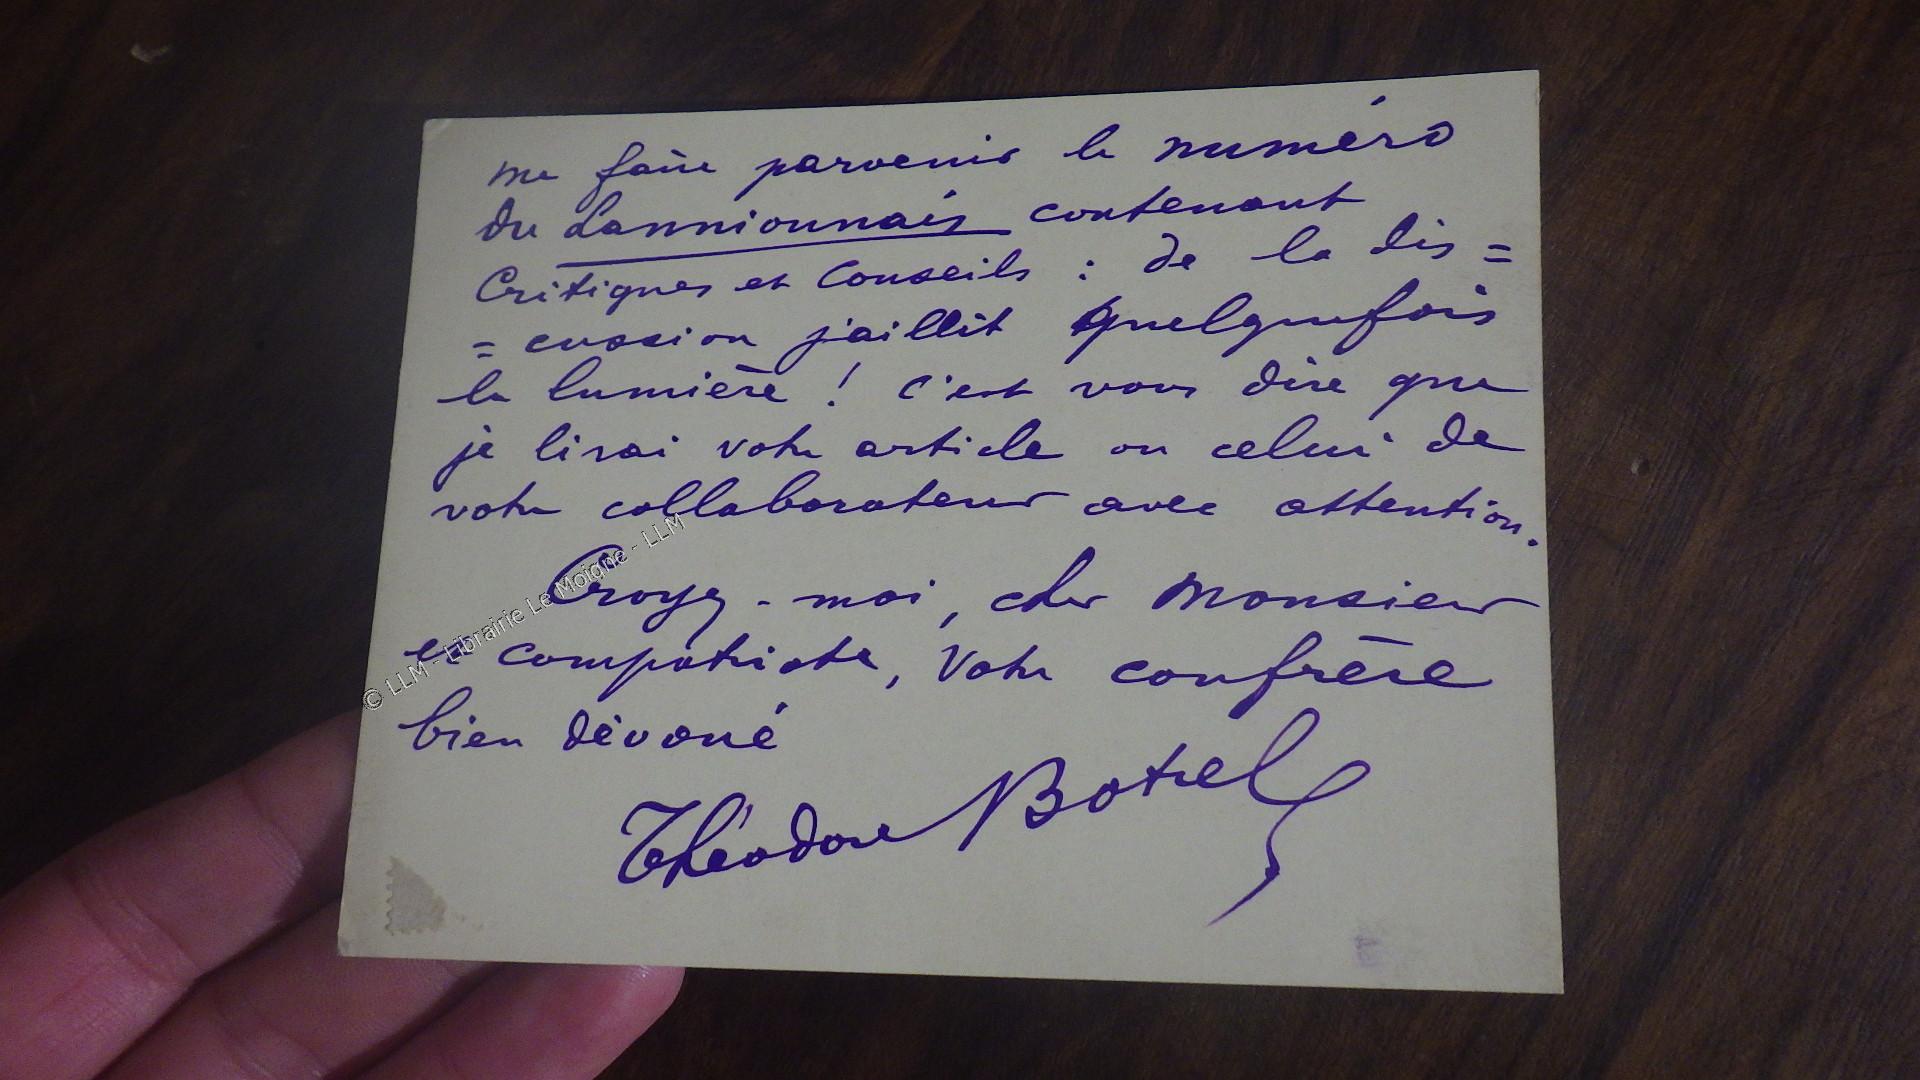 me faire parvenir le numéro
du Lannionnais contenant
Critiques et Conseils : de la dis=
=cussion jaillit quelquefois
la lumière ! C'est vous dire que
je lirai votre article ou celui de
votre collaborateur avec attention.
Croyez-moi, cher Monsieur
et compatriote, votre confrère
bien dévoué
Théodore Botrel
© LLM - Librairie Le Moigne - LLM